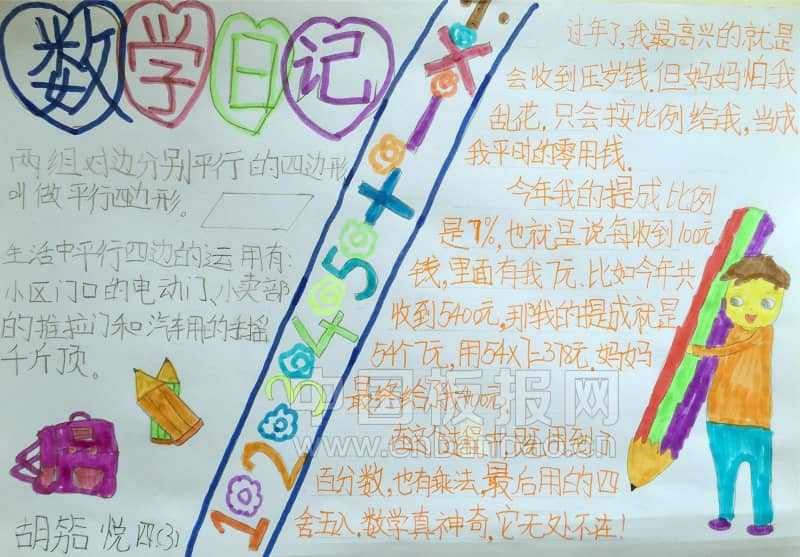 数学日记
两组对边分别平行的四边形
叫做平行四边形。
生活中平行四边的运用有：
小区门口的电动门、小卖部
的推拉门和汽车用的手摇
千斤顶。
胡 悦 四(3)
1 2 3 4 5 + - × ÷
过年了,我最高兴的就是
会收到压岁钱.但妈妈怕我
乱花,只会按比例给我,当成
我平时的零用钱.
今年我的提成比例
是7%,也就是说每收到100元
钱,里面有我7元.比如今年共
收到5400元,那我的提成就是
54个7元,用54×7=378元.妈妈
最终给了我400元,
在这过程中既用到了
百分数,也有乘法,最后用的四
舍五入,数学真神奇,它无处不在!
中国板报网
www.cnbanbao.cn